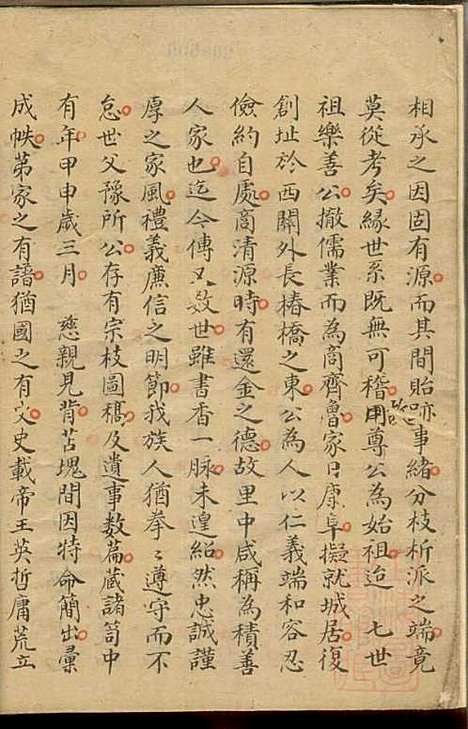 相承之因固有源而其間貽跡事緒分枝析派之端竟
莫從考矣緣世系既無可稽用尊公為始祖迨 七世
祖樂善公撤儒業而為商齊魯家日康阜擬就城居復
創址於西關外長椿橋之東公為人以仁義端和容忍
儉約自處商清源時有還金之德故里中咸稱為積善
人家也迄今傳又數世雖書香一脉未遑紹然忠誠謹
厚之家風禮義廉信之明節我族人猶拳〻遵守而不
怠世父豫所公存有宗枝圖稿及遺事數篇藏諸笥中
有年甲申歲三月 慈親見背苫塊間因特命簡出彙
成帙第家之有譜猶國之有史史載帝王英哲庸荒立